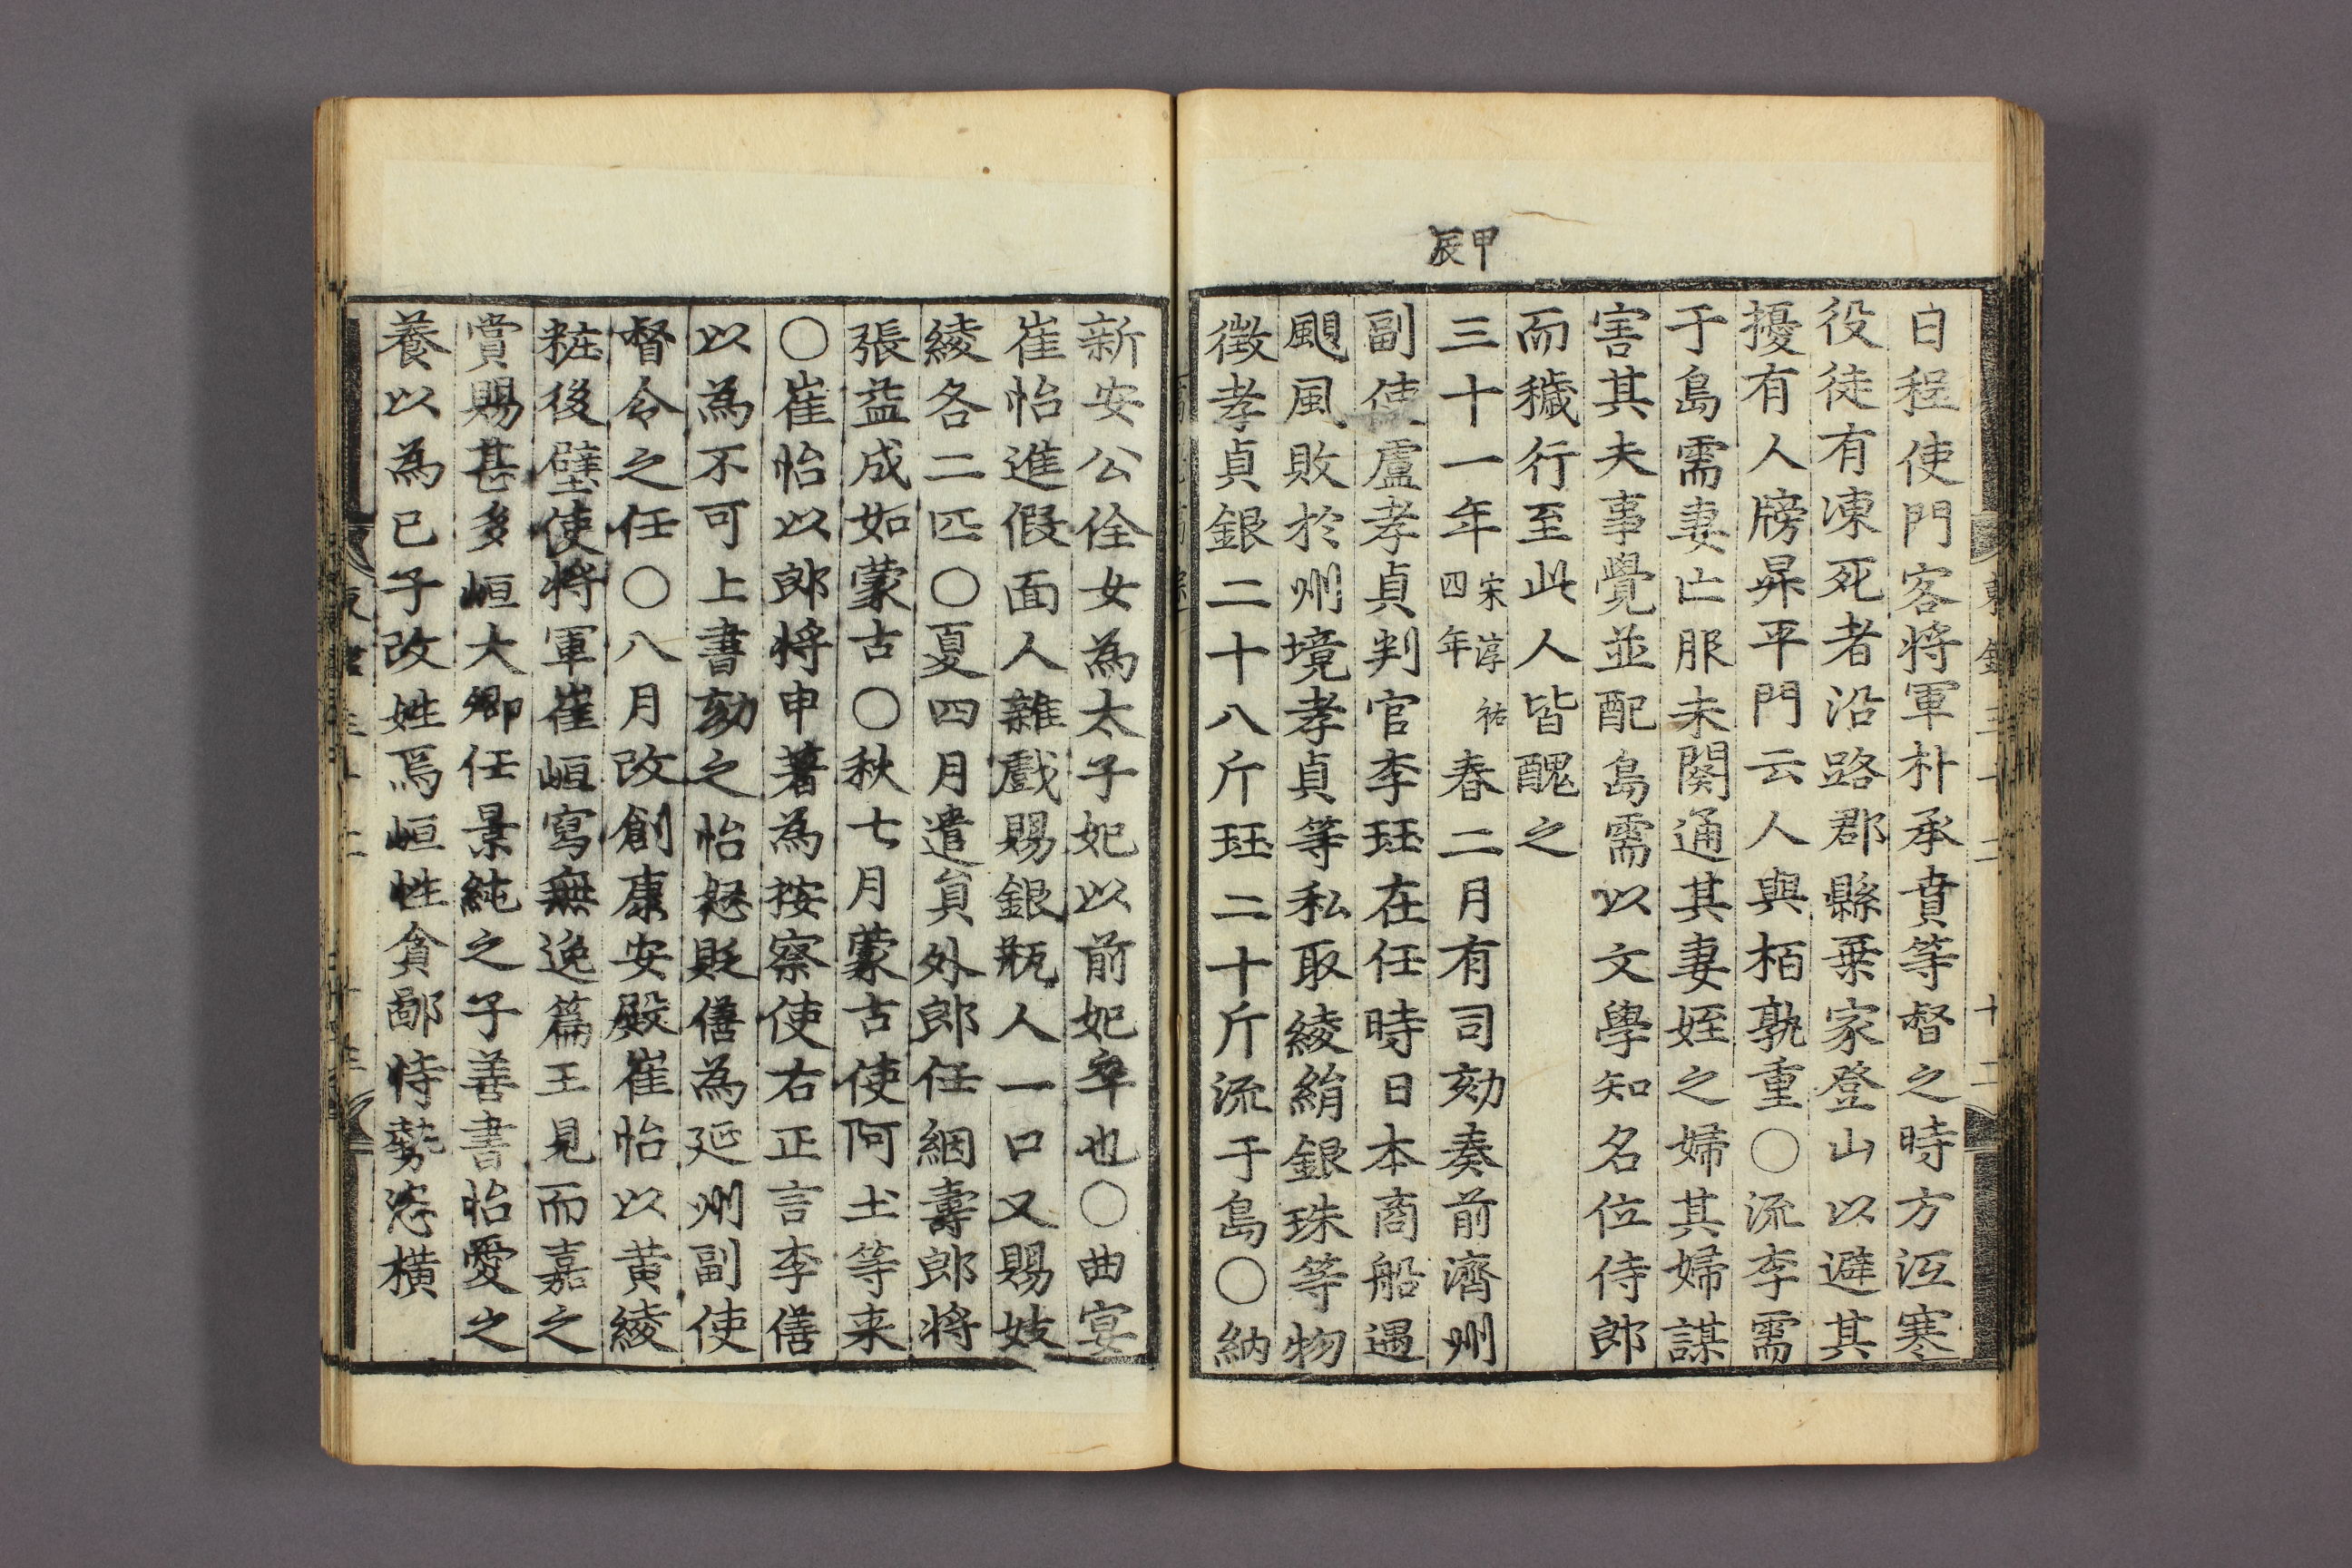 甲辰
白程使門客将軍朴承賁等督之時方冱寒
役徒有凍死者沿路郡縣棄家登山以避其
擾有人牓昇平門云人與栢孰重〇流李需
于島需妻亡服未闋通其妻姪之婦其婦謀
害其夫事覺並配島需以文學知名位侍郎
而穢行至此人皆醜之
三十一年宋淳祐四年春二月有司劾奏前濟州
副使盧孝貞判官李珏在任時日本商船遇
颶風敗於州境孝貞等私取綾絹銀珠等物
徵孝貞銀二十八斤珏二十斤流于島〇納
新安公佺女為太子妃以前妃卒也〇曲宴
崔怡進假面人雜戲賜銀瓶人一口又賜妓
綾各二匹〇夏四月遣員外郎任絪壽郎将
張益成如蒙古〇秋七月蒙古使阿土等来
〇崔怡以郎将申著為按察使右正言李僐
以為不可上書劾之怡怒貶僐為延州副使
督令之任〇八月改創康安殿崔怡以黄綾
粧後壁使将軍崔峘寫無逸篇王見而嘉之
賞賜甚多峘大卿任景純之子善書怡愛之
養以為已子改姓焉峘性貪鄙恃勢恣横